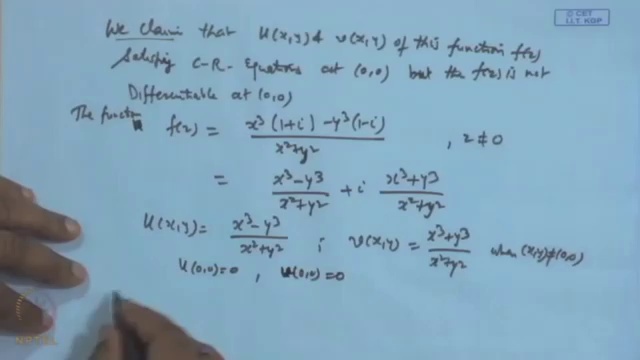 © CET
I.I.T. KGP
We claim that u(x,y) & v(x,y) of this function f(z)
Satisfies C-R- Equations at (0,0) but the f(z) is not
Differentiable at (0,0)
The function f(z) = x³(1+i) - y³(1-i) / x²+y² , z ≠ 0
= x³-y³ / x²+y² + i x³+y³ / x²+y²
u(x,y) = x³-y³ / x²+y² ; v(x,y) = x³+y³ / x²+y² when (x,y)≠(0,0)
u(0,0)=0 , v(0,0)=0
NPTEL